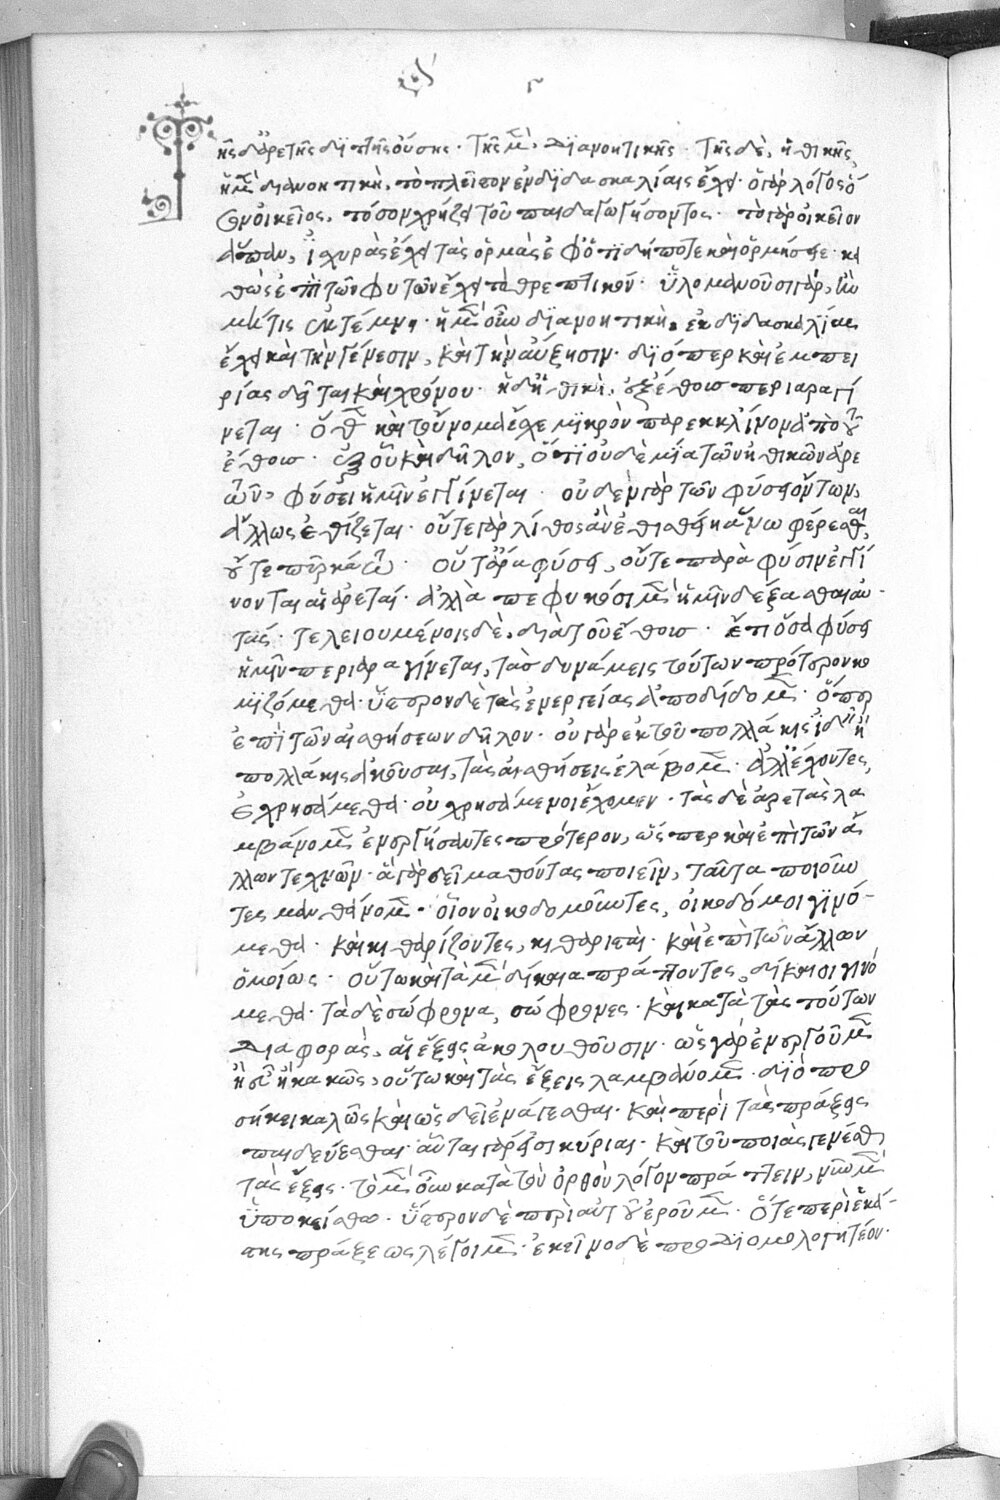 Τῆς ἀρετῆς διττῆς οὔσης· τῆς μὲν, διανοητικῆς· τῆς δὲ, ἠθικῆς,
ἡ μὲν διανοητικὴ, τὸ πλεῖστον ἐν διδασκαλίαις ἔχει· ὁ γὰρ λόγος ὁ
οἰκεῖος, τόσον χρήζει τοῦ παιδαγωγήσοντος· τὸ γὰρ οἰκεῖον
ἅπαν, ἰσχυρὰς ἔχει τὰς ὁρμὰς ἐφ' ὅτι δήποτε καὶ ὁρμήσῃ· κα
θὼς ἐπὶ τῶν φυτῶν ἔχει τὸ θρεπτικόν· ὑλομανοῦσι γὰρ, ἂν
μή τις ἐκτέμνῃ· ἡ μὲν οὖν διανοητικὴ, ἐκ διδασκαλίας
ἔχει καὶ τὴν γένεσιν, καὶ τὴν αὔξησιν· διόπερ καὶ ἐμπει
ρίας δεῖται καὶ χρόνου· ἡ δὲ ἠθικὴ, ἐξ ἔθους περιαραγί
νεται· ὅθεν καὶ τοὔνομα ἔσχε μικρὸν παρεκκλίνον ἀπὸ τοῦ
ἔθους· ἐξ οὗ καὶ δῆλον, ὅτι οὐδεμία τῶν ἠθικῶν ἀρε
τῶν, φύσει ἡμῖν ἐγγίνεται· οὐδὲν γὰρ τῶν φύσει ὄντων,
ἄλλως ἐθίζεται· οὔτε γὰρ λίθος ἂν ἐθισθείη ἄνω φέρεσθαι,
οὔτε πῦρ κάτω· οὔτ' ἄρα φύσει, οὔτε παρὰ φύσιν ἐγγί
νονται αἱ ἀρεταί· ἀλλὰ πεφυκόσι μὲν ἡμῖν δέξασθαι αὐ-
τάς· τελειουμένοις δὲ, διὰ τοῦ ἔθους· ἔτι ὅσα φύσει
ἡμῖν περιαραγίνεται, τὰς δυνάμεις τούτων πρότερον κο
μιζόμεθα· ὕστερον δὲ τὰς ἐνεργείας ἀποδίδομεν· ὅπερ
ἐπὶ τῶν αἰσθήσεων δῆλον· οὐ γὰρ ἐκ τοῦ πολλάκις ἰδεῖν ἢ
πολλάκις ἀκοῦσαι, τὰς αἰσθήσεις ἐλάβομεν· ἀλλ' ἔχοντες,
ἐχρησάμεθα· οὐ χρησάμενοι ἔχομεν· τὰς δὲ ἀρετὰς λα
μβάνομεν ἐνεργήσαντες πρότερον, ὥσπερ καὶ ἐπὶ τῶν ἄ
λλων τεχνῶν· ἃ γὰρ δεῖ μαθόντας ποιεῖν, ταῦτα ποιοῦν
τες μανθάνομεν· οἷον οἰκοδομοῦντες, οἰκοδόμοι γινό-
μεθα· καὶ κιθαρίζοντες, κιθαρισταί· καὶ ἐπὶ τῶν ἄλλων
ὁμοίως· οὕτω καὶ τὰ μὲν δίκαια πράττοντες, δίκαιοι γινό
μεθα· τὰ δὲ σώφρονα, σώφρονες· καὶ κατὰ τὰς τούτων
διαφορὰς, αἱ ἕξεις ἀκολουθοῦσιν· ὡς γὰρ ἐνεργοῦμεν
ἢ εὖ ἢ κακῶς, οὕτω καὶ τὰς ἕξεις λαμβάνομεν· διὸ προ
σήκει καλῶς καὶ ὡς δεῖ ἐνάγεσθαι· καὶ περὶ τὰς πράξεις
παιδεύεσθαι· αὗται γάρ εἰσι κύριαι· καὶ τοῦ ποιὰς γενέσθαι
τὰς ἕξεις· τὸ μὲν οὖν κατὰ τὸν ὀρθὸν λόγον πράττειν, νῦν μὲν
ὑποκείσθω· ὕστερον δὲ περὶ αὐτοῦ ἐροῦμεν· ὅτε περὶ ἑκά-
στης πράξεως λέγοιμεν· ἐκεῖνο δὲ προδιομολογητέον·